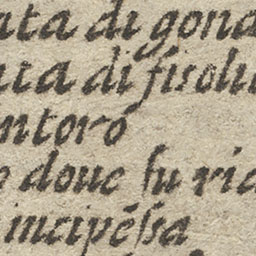 ata di gona
ata di fisolu
ntoro
o doue fu ric
incipéssa